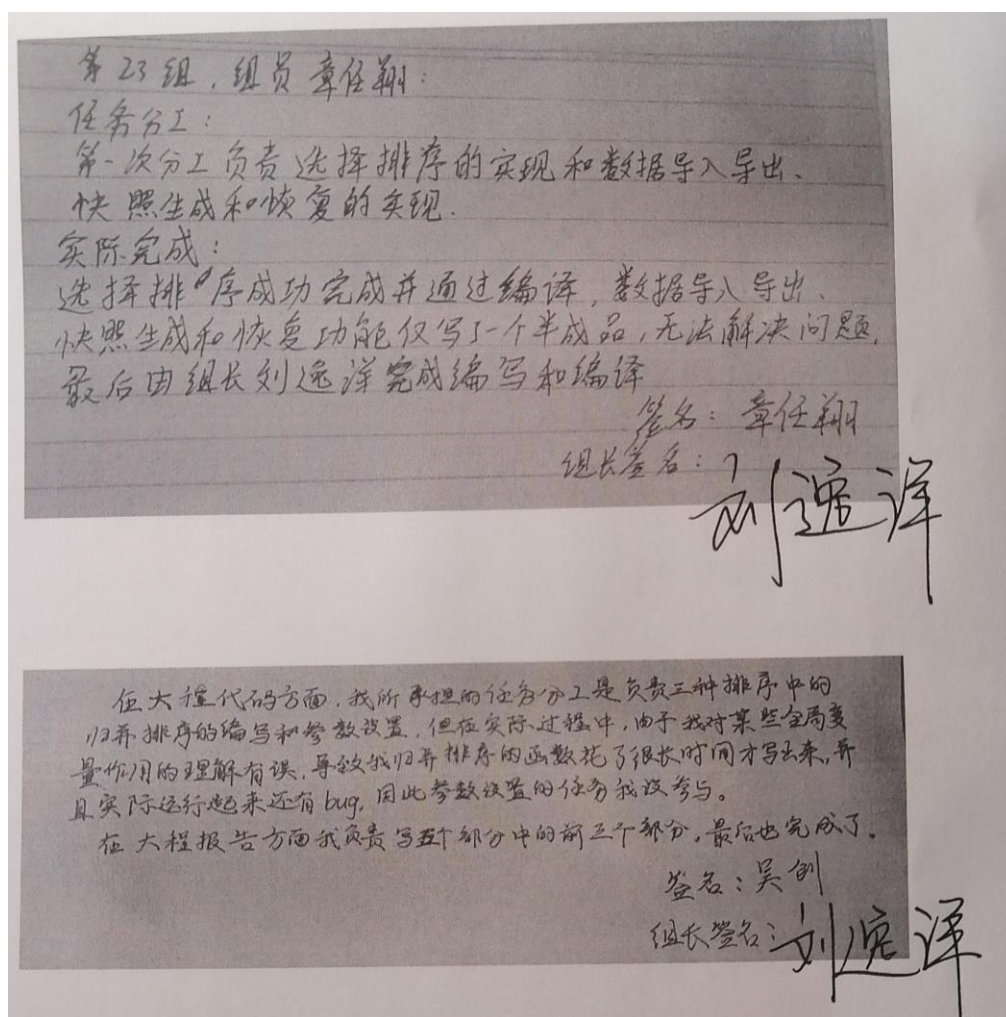 第23组，组员章任翔：
任务分工：
第一次分工负责选择排序的实现和数据导入导出、
快照生成和恢复的实现.
实际完成：
选择排序成功完成并通过编译，数据导入导出、
快照生成和恢复功能仅写了一个半成品，无法解决问题，
最后由组长刘逸洋完成编写和编译
签名：章任翔
组长签名：
刘逸洋
在大程代码方面，我所承担的任务分工是负责三种排序中的
归并排序的编写和参数设置，但在实际过程中，由于我对某些全局变
量作用的理解有误，导致我归并排序的函数花了很长时间才写出来，并
且实际运行起来还有bug，因此参数设置的任务我没参与。
在大程报告方面我负责写五个部分中的前三个部分，最后也完成了。
签名：吴创
组长签名：刘逸洋